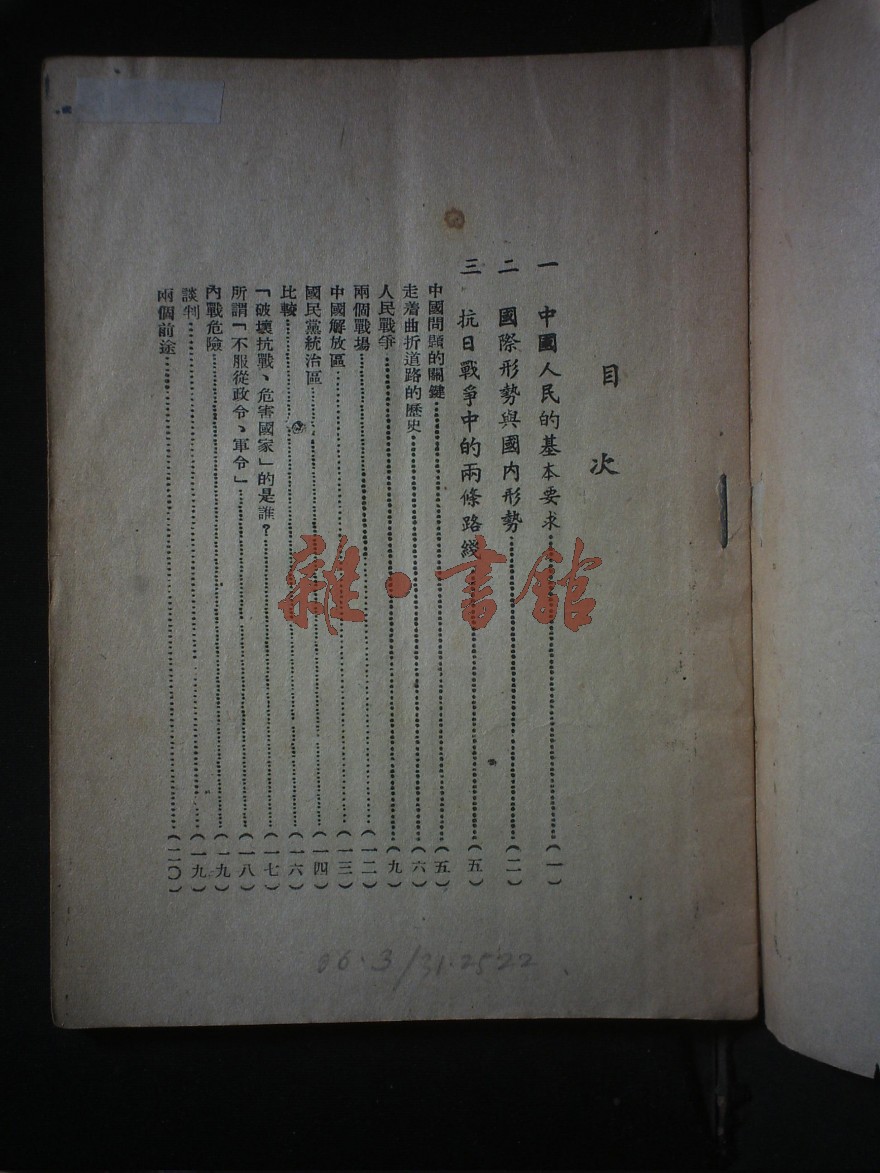 目次
一 中國人民的基本要求……(一)
二 國際形勢與國内形勢……(二)
三 抗日戰爭中的兩條路綫……(五)
中國問題的關鍵……(五)
走着曲折道路的歷史……(六)
人民戰爭……(九)
兩個戰場……(一二)
中國解放區……(一三)
國民黨統治區……(一四)
比較……(一六)
「破壞抗戰、危害國家」的是誰?……(一七)
所謂「不服從政令、軍令」……(一八)
内戰危險……(一九)
談判……(一九)
兩個前途……(二〇)
雜·書館
06.3/31.2522